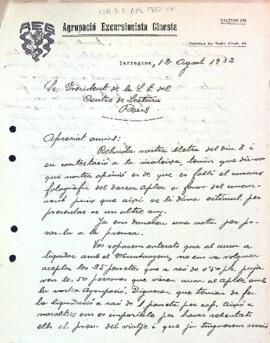 Agrupació Excursionista Ginesta
Tarragona, 12 Agost 1932
Sr. President de la S. E. del
Centre de Lectura
Reus
Apreciat amic:
Rebuda vostra lletra del dia 8 i
en contestació a la mateixa, tenim que dir-vos
que nostra opinió es de que es falli el concurs
fotogràfic del darrer Aplec a favor del concur-
sant puix que aixís se li dona estimul per
presentar-se un altre any.
Ja em donareu una nota per po-
sar-la a la premsa.
Vos suposem enterats que al anar a
liquidar amb el Muntanyenc, no en va volguer
aceptar les 25 pessetes que a raó de 0'50 pts. pu-
javen les 50 persones que varen anar al Aplec amb
la vostra Agrupació. Digueren que tenien de fer
la liquidació a raó de 1 pesseta per cap. Aixó a
nosaltres ens es imposible per haver senyalat
ells el preu del viatje i que ja tragueren